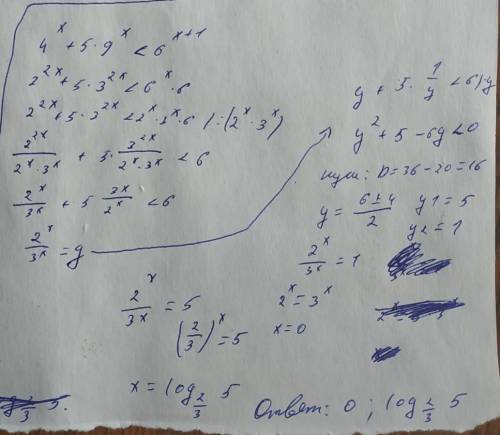 4^x + 5·9^x < 6^(x+1)
2^(2x) + 5·3^(2x) < 6^x · 6
2^(2x) + 5·3^(2x) < 2^x · 3^x · 6 | :(2^x · 3^x)
2^(2x)/(2^x · 3^x) + 5 · 3^(2x)/(2^x · 3^x) < 6
2^x/3^x + 5 · 3^x/2^x < 6
2^x/3^x = y
y + 5 · 1/y < 6 | · y
y² + 5 − 6y < 0
нули: D = 36 − 20 = 16
y = (6 ± 4)/2 y1 = 5
y2 = 1
2^x/3^x = 1
2^x = 3^x
x = 0
2^x/3^x = 5
(2/3)^x = 5
x = log_(2/3) 5
Ответ: 0 ; log_(2/3) 5